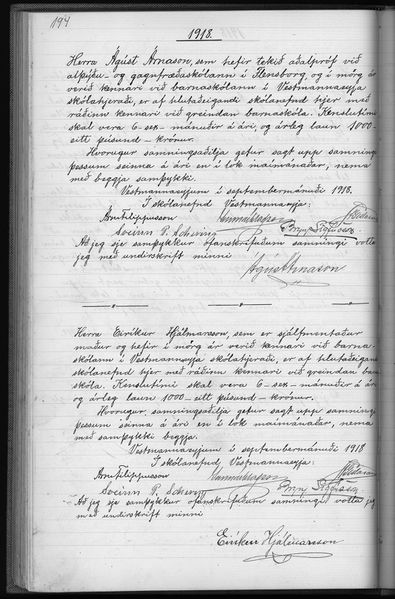 194
1918.
Herra Ágúst Árnason, sem hefir tekið aðalpróf við
alþýðu- og gagnfræðaskólann í Flensborg, og í mörg ár
verið kennari við barnaskólann í Vestmannaeyja
skólahjeraði, er af hlutaðeigandi skólanefnd hjer með
ráðinn kennari við greindan barnaskóla. Kenslutími
skal vera 6-sex- mánuðir á ári, og árleg laun 1000-
eitt þúsund- krónur.
Hvorugur samningsaðilja getur sagt upp samningi
þessum seinna á ári en í lok maímánaðar, nema
með beggja samþykki.
Vestmannaeyjum í septembermánuði 1918.
Í skólanefnd Vestmannaeyja:
Árni Filippusson
Sveinn P. Scheving Brynj. Sigfússon
Að jeg sje samþykkur ofanskrifuðum samningi votta
jeg með undirskrift minni
Ágúst Árnason
Herra Eiríkur Hjálmarsson, sem er sjálfmentaður
maður og hefir í mörg ár verið kennari við barna-
skólann í Vestmannaeyja skólahjeraði, er af hlutaðeigan
skólanefnd hjer með ráðinn kennari við greindan barna
skóla. Kenslutími skal vera 6-sex- mánuðir á ári
og árleg laun 1000-eitt þúsund- krónur.
Hvorugur samningsaðilja getur sagt upp samningi
þessum seinna á ári en í lok maímánaðar, nema
með samþykki beggja.
Vestmannaeyjum í septembermánuði 1918
Í skólanefnd Vestmannaeyja:
Árni Filippusson
Sveinn P. Scheving Brynj. Sigfússon
Að jeg sje samþykkur ofanskrifuðum samningi votta jeg
með undirskrift minni
Eiríkur Hjálmarsson